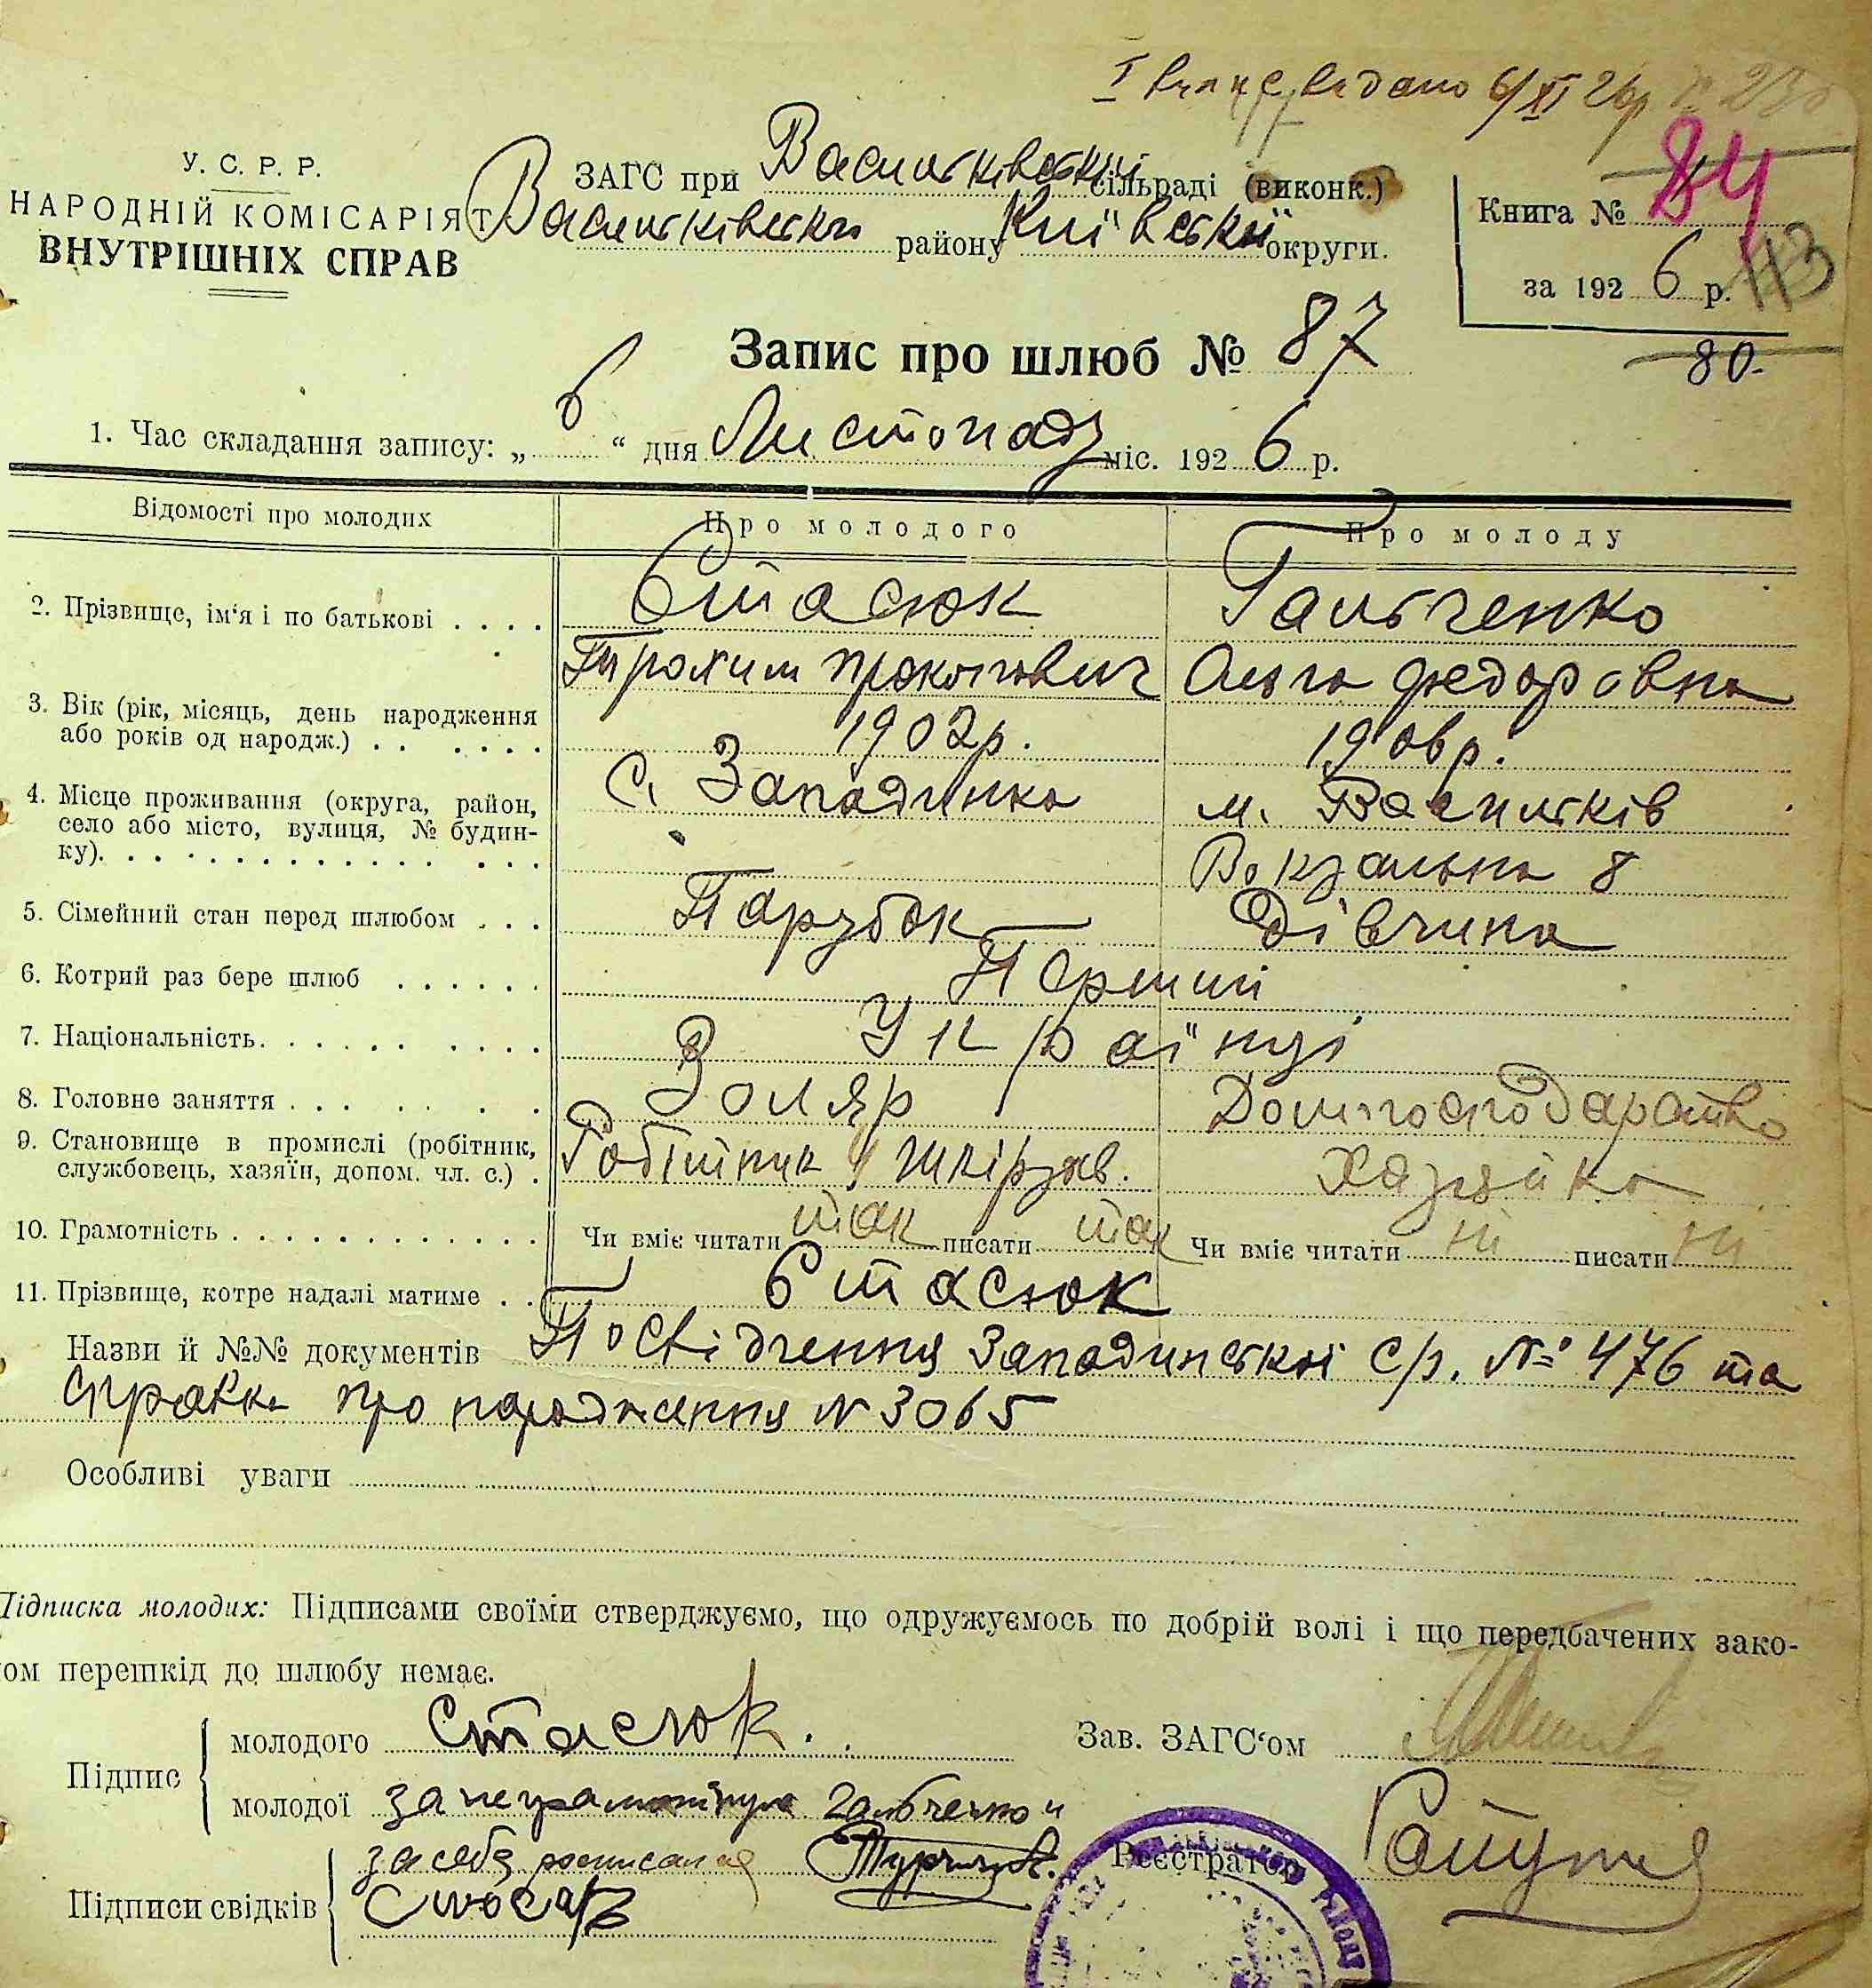 видано 6/XI 26р
У. С. Р. Р.
НАРОДНІЙ КОМІСАРІЯТ
ВНУТРІШНІХ СПРАВ
ЗАГС при Васильківській сільраді (виконк.)
Васильківського району Київської округи.
Книга № 84
за 1926 р. 113
80.
Запис про шлюб № 87
1. Час складання запису: „6“ дня Листопада міс. 1926 р.
Відомості про молодих
Про молодого
Про молоду
2. Прізвище, ім'я і по батькові
Стасюк
Гальченко
Трохим Прокопович
Ольга Федоровна
3. Вік (рік, місяць, день народження
або років од народж.)
1902р.
1906р.
4. Місце проживання (округа, район,
село або місто, вулиця, № будин-
ку).
С. Западинка
м. Васильків
Вокзальна 8
5. Сімейний стан перед шлюбом
Парубок
Дівчина
6. Котрий раз бере шлюб
Перший
7. Національність.
Українці
8. Головне заняття
Золяр
Домогосподарство
9. Становище в промислі (робітник,
службовець, хазяїн, допом. чл. с.)
Робітник шкірзав.
Хазяйка
10. Грамотність
Чи вміє читати так писати так
Чи вміє читати ні писати ні
11. Прізвище, котре надалі матиме
Стасюк
Назви й №№ документів Посвідчення Западинської С/р. № 476 та
справка про народження N 3065
Особливі уваги
Підписка молодих: Підписами своїми стверджуємо, що одружуємось по добрій волі і що передбачених зако-
ом перешкід до шлюбу немає.
Підпис
молодого Стасюк.
Зав. ЗАГС'ом
молодої за неграмотную Гальченко и
за себя росписался
Реєстратор
Підписи свідків
Слюсар